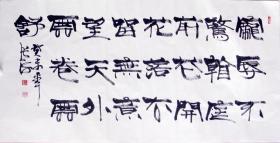 寵辱不
驚看庭
前花開
花落去
留無意
望天外
雲卷雲
舒